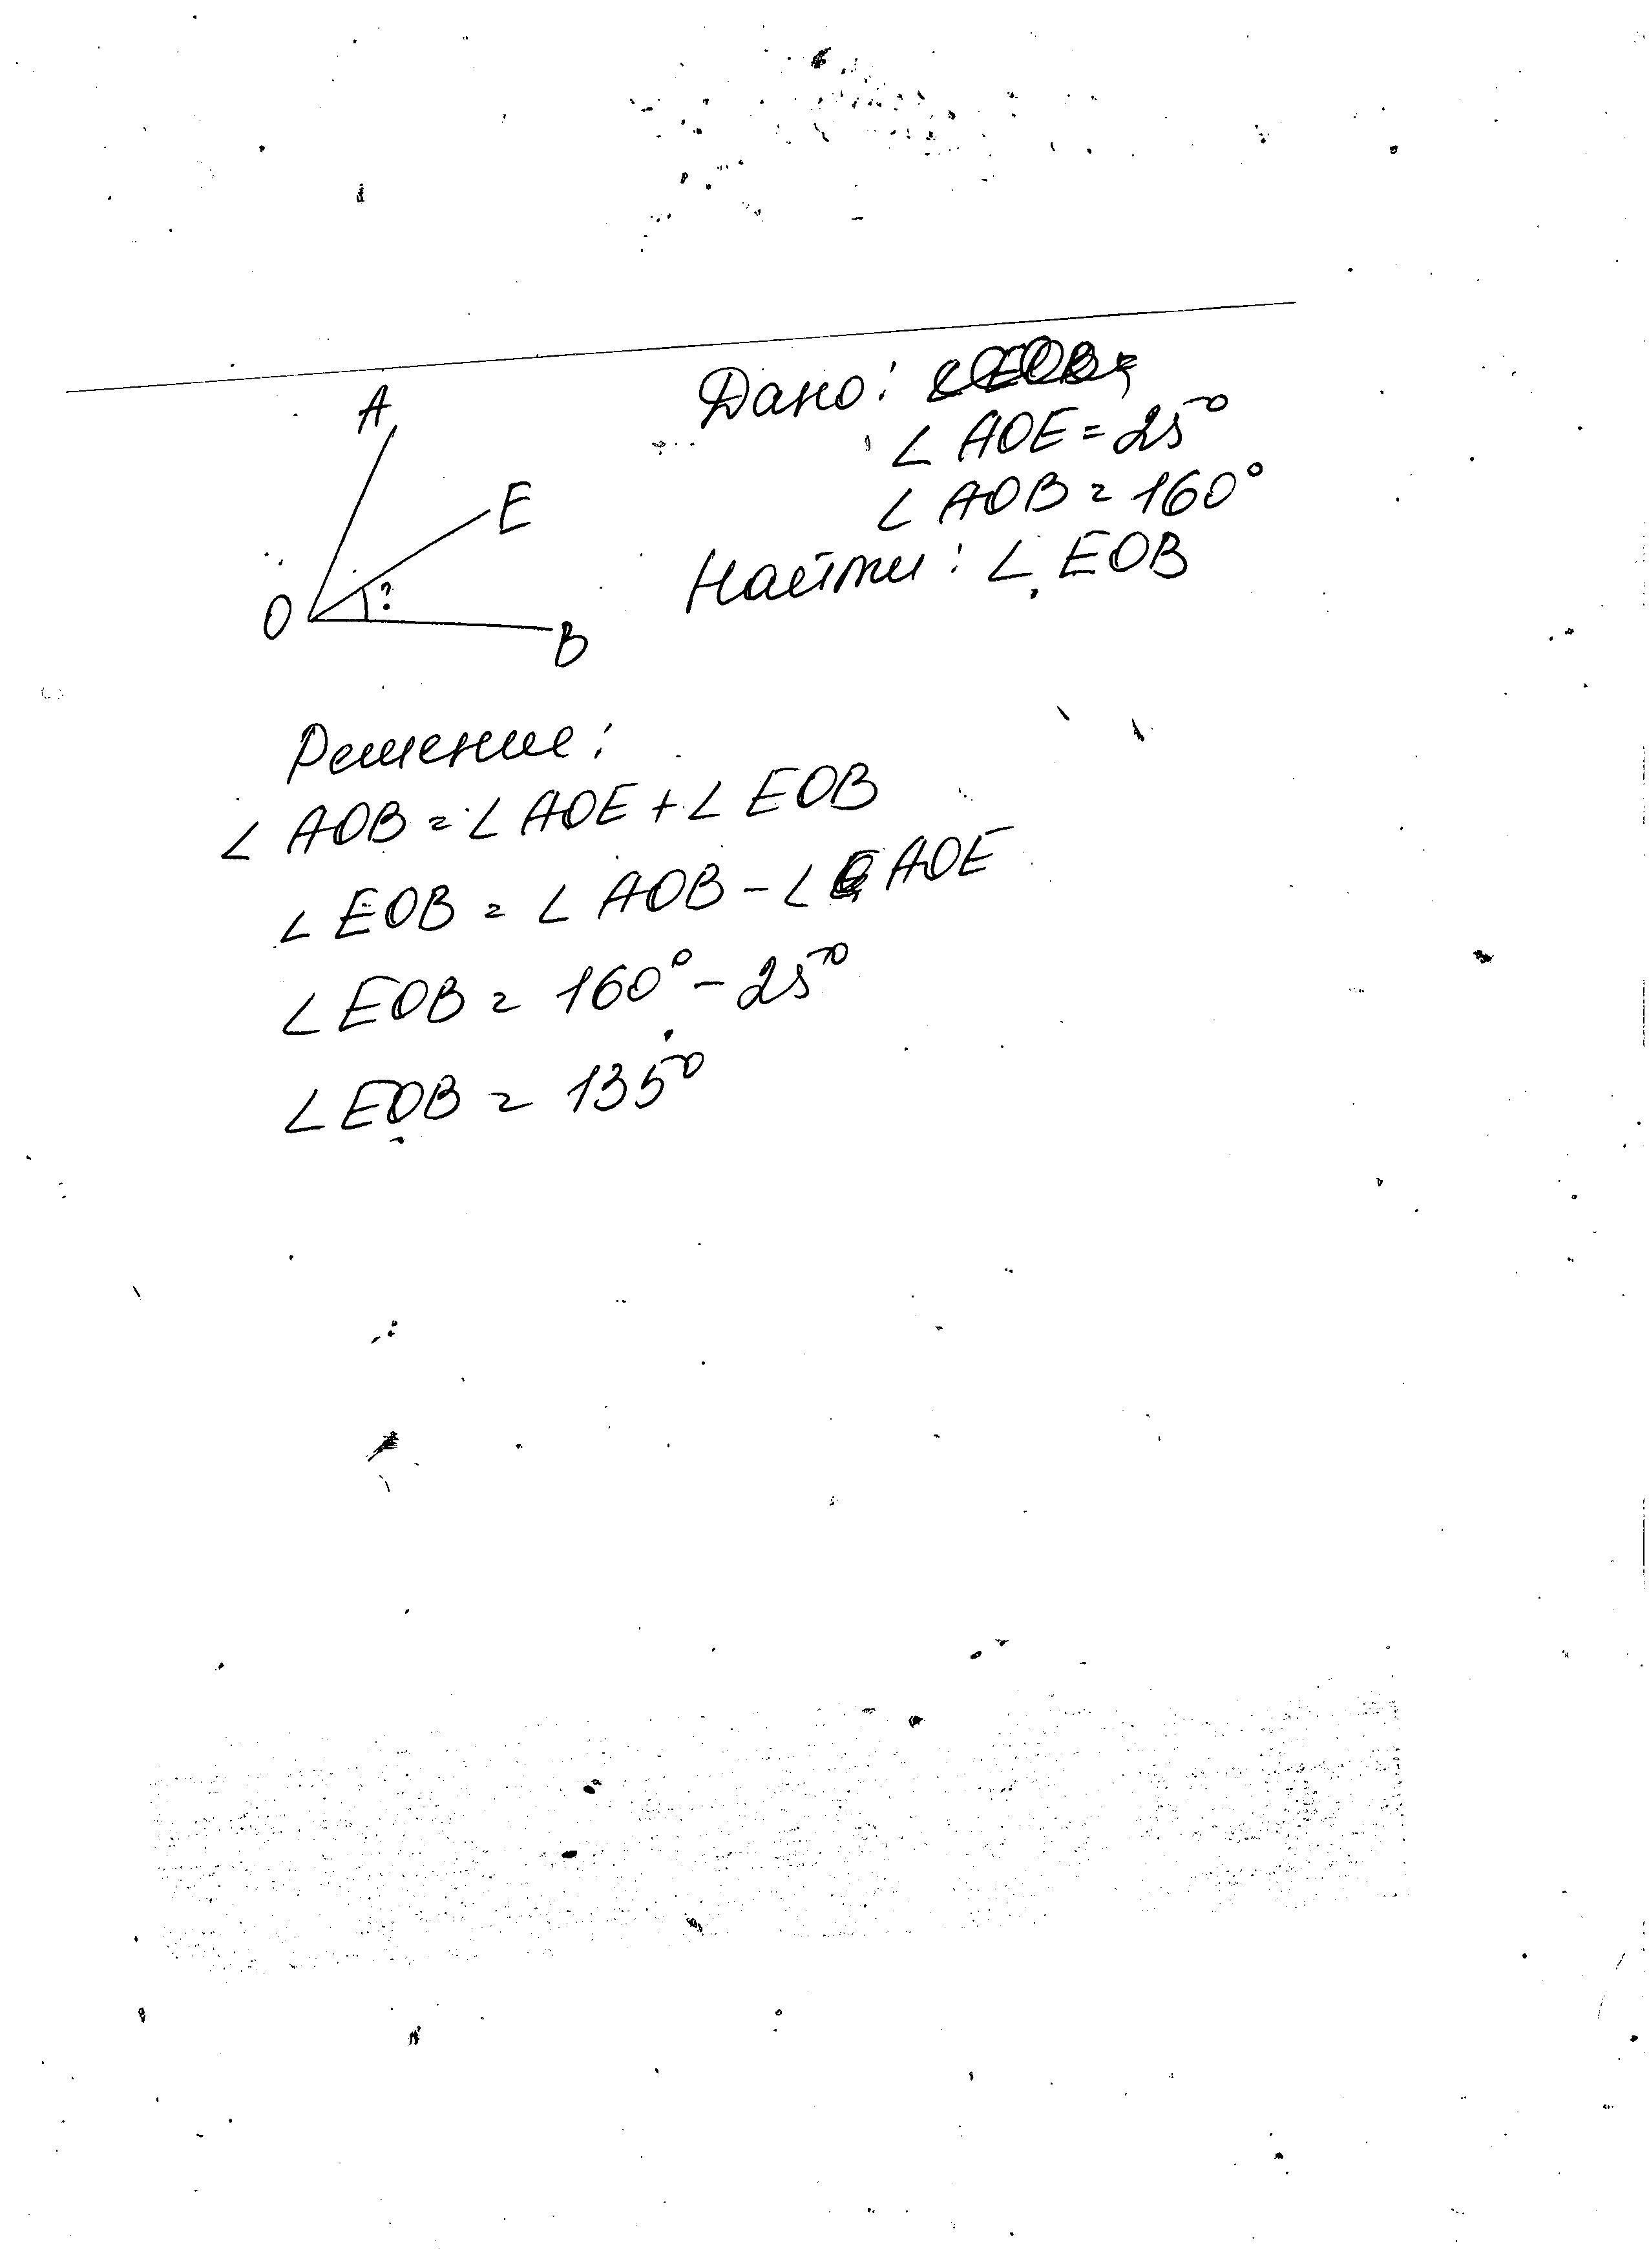 Дано:
∠ AOE = 25°
∠ AOB = 160°
Найти: ∠ EOB
A
E
O
?
B
Решение:
∠ AOB = ∠ AOE + ∠ EOB
∠ EOB = ∠ AOB - ∠ AOE
∠ EOB = 160° - 25°
∠ EOB = 135°